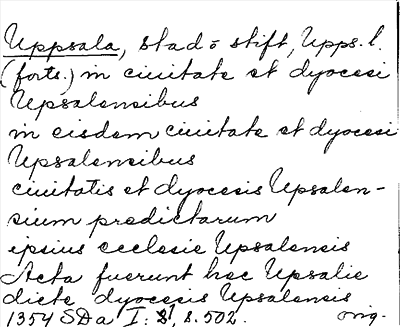 Uppsala, stad o stift, Upps. l.
(forts.) in ciuitate et dyocesi
Upsalensibus
in eisdem ciuitate et dyocesi
Upsalensibus
ciuitatis et dyocesis Upsalen-
sium predictarum
ipsius ecclesie Upsalensis
Acta fuerunt hec Upsalie
dicte dyocesis Upsalensis
1354 SDa I: s. 502. orig.